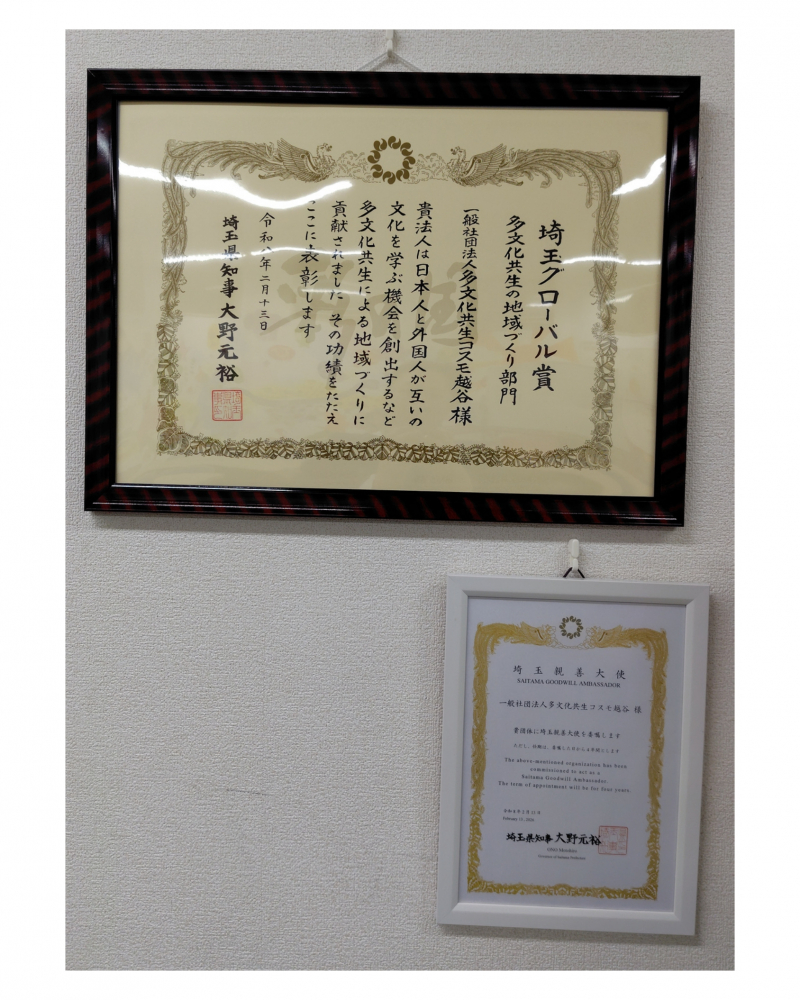 埼玉グローバル賞
多文化共生の地域づくり部門
一般社団法人多文化共生コスモ越谷 様
貴法人は日本人と外国人が互いの
文化を学ぶ機会を創出するなど
多文化共生による地域づくりに
貢献されました その功績をたたえ
ここに表彰します
令和八年二月十三日
埼玉県知事 大野元裕
埼玉親善大使
SAITAMA GOODWILL AMBASSADOR
一般社団法人多文化共生コスモ越谷 様
貴団体に埼玉親善大使を委嘱します
ただし、任期は、委嘱した日から4年間とします
The above-mentioned organization has been
commissioned to act as a
Saitama Goodwill Ambassador.
The term of appointment will be for four years.
令和8年2月13日
February 13, 2026
埼玉県知事 大野元裕
ONO Motohiro
Governor of Saitama Prefecture